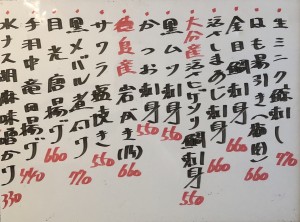 生ミニク鯨刺し 770
はも湯引き(梅肉) 660
金目鯛刺身 660
活〆しまあじ刺身 660
大分産活〆ヒゲソリ鯛刺身 550
黒ムツ刺身 550
かつお刺身 550
徳島産岩がき(内) 660
サワラ塩焼き 550
黒メバル煮付け 770
目光唐揚げ 660
手羽中竜田揚げ 440
水ナス胡麻味噌かけ 330